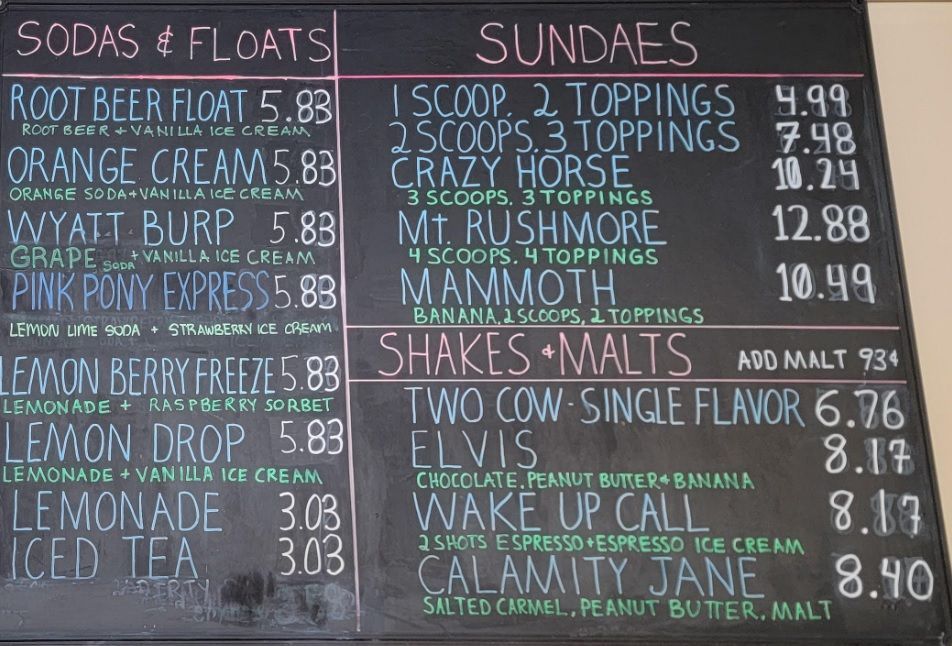 SODAS & FLOATS
ROOT BEER FLOAT 5.83
ROOT BEER + VANILLA ICE CREAM
ORANGE CREAM 5.83
ORANGE SODA + VANILLA ICE CREAM
WYATT BURP 5.83
GRAPE SODA + VANILLA ICE CREAM
PINK PONY EXPRESS 5.83
LEMON LIME SODA + STRAWBERRY ICE CREAM
LEMON BERRY FREEZE 5.83
LEMONADE + RASPBERRY SORBET
LEMON DROP 5.83
LEMONADE + VANILLA ICE CREAM
LEMONADE 3.03
ICED TEA 3.03
SUNDAES
1 SCOOP, 2 TOPPINGS 4.99
2 SCOOPS, 3 TOPPINGS 7.48
CRAZY HORSE 10.24
3 SCOOPS, 3 TOPPINGS
Mt. RUSHMORE 12.88
4 SCOOPS, 4 TOPPINGS
MAMMOTH 10.49
BANANA, 2 SCOOPS, 2 TOPPINGS
SHAKES & MALTS ADD MALT 93¢
TWO COW - SINGLE FLAVOR 6.76
ELVIS 8.17
CHOCOLATE, PEANUT BUTTER & BANANA
WAKE UP CALL 8.17
2 SHOTS ESPRESSO + ESPRESSO ICE CREAM
CALAMITY JANE 8.40
SALTED CARMEL, PEANUT BUTTER, MALT